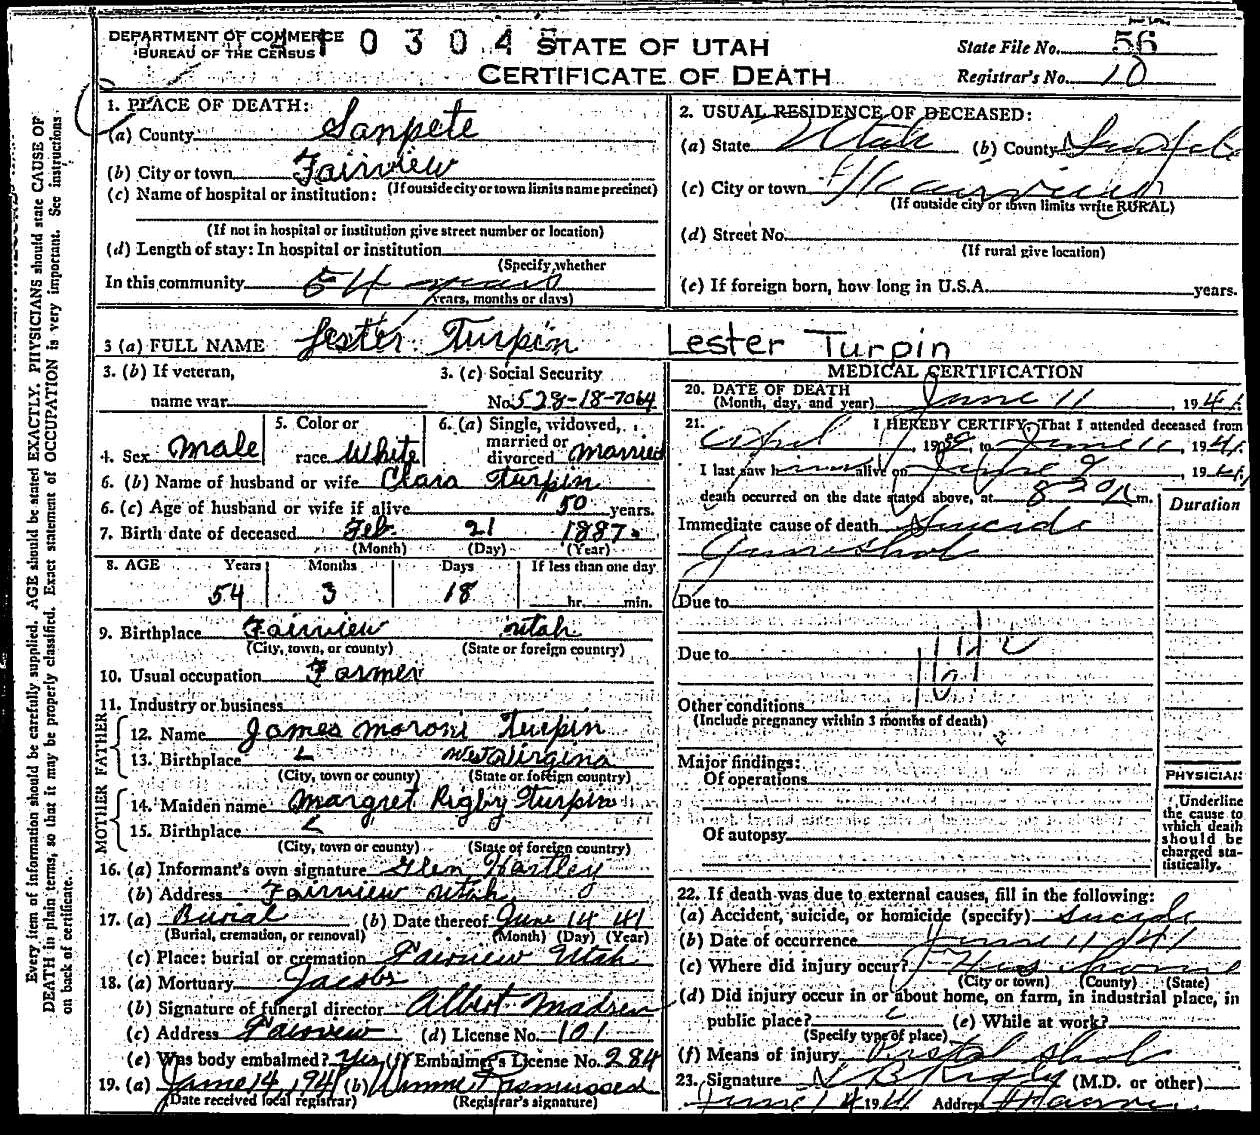 DEPARTMENT OF COMMERCE
BUREAU OF THE CENSUS
0 3 0 4
STATE OF UTAH
CERTIFICATE OF DEATH
State File No. 56
Registrar's No. 10
Every item of information should be carefully supplied. AGE should be stated EXACTLY. PHYSICIANS should state CAUSE OF
DEATH in plain terms, so that it may be properly classified. Exact statement of OCCUPATION is very important. See instructions
on back of certificate.
1. PLACE OF DEATH:
(a) County Sanpete
(b) City or town Fairview
(If outside city or town limits name precinct)
(c) Name of hospital or institution:
(If not in hospital or institution give street number or location)
(d) Length of stay: In hospital or institution
(Specify whether
In this community 54 years
years, months or days)
2. USUAL RESIDENCE OF DECEASED:
(a) State Utah (b) County Sanpete
(c) City or town Fairview
(If outside city or town limits write RURAL)
(d) Street No.
(If rural give location)
(e) If foreign born, how long in U.S.A. years.
3 (a) FULL NAME Lester Turpin Lester Turpin
3. (b) If veteran,
name war
3. (c) Social Security
No. 528-18-7064
4. Sex Male
5. Color or
race White
6. (a) Single, widowed,
married or
divorced married
6. (b) Name of husband or wife Clara Turpin
6. (c) Age of husband or wife if alive 50 years.
7. Birth date of deceased Feb. 21 1887
(Month) (Day) (Year)
8. AGE Years Months Days If less than one day
54 3 18 hr. min.
9. Birthplace Fairview Utah
(City, town, or county) (State or foreign country)
10. Usual occupation Farmer
11. Industry or business
FATHER
12. Name James Moroni Turpin
13. Birthplace West Virgina
(City, town or county) (State or foreign country)
MOTHER
14. Maiden name Margret Rigby Turpin
15. Birthplace
(City, town or county) (State of foreign country)
16. (a) Informant's own signature Glen Hartley
(b) Address Fairview Utah
17. (a) Burial (b) Date thereof June 14 41
(Burial, cremation, or removal) (Month) (Day) (Year)
(c) Place: burial or cremation Fairview Utah
18. (a) Mortuary Jacobs
(b) Signature of funeral director Albert Madsen
(c) Address Fairview (d) License No. 101
(e) Was body embalmed? Yes (f) Embalmer's License No. 284
19. (a) June 14, 1941 (b) Rasmussen
(Date received local registrar) (Registrar's signature)
MEDICAL CERTIFICATION
20. DATE OF DEATH
(Month, day, and year) June 11, 1941
21. I HEREBY CERTIFY, That I attended deceased from
April, 19 to June 11, 1941
I last saw him alive on June 9 1941
death occurred on the date stated above, at 8 30 A m.
Duration
Immediate cause of death Suicide
Gunshot
Due to
Due to
Other conditions
(Include pregnancy within 3 months of death)
Major findings:
Of operations
Of autopsy
PHYSICIAN
Underline
the cause to
which death
should be
charged sta-
tistically.
22. If death was due to external causes, fill in the following:
(a) Accident, suicide, or homicide (specify) suicide
(b) Date of occurrence June 11 1941
(c) Where did injury occur? His home
(City or town) (County) (State)
(d) Did injury occur in or about home, on farm, in industrial place, in
public place? (e) While at work?
(Specify type of place)
(f) Means of injury Pistol shot
23. Signature Rigby (M.D. or other)
June 14 1941 Address Fairview